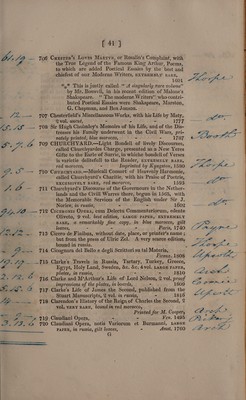 [ 41 ]
706 CHESTER'S LOVES MARTYR, or Rosalin's Complaint, with
the True Legend of the Famous King Arthur, Poems,
to which are added Poetical Assaies by the best and
chiefest of our Moderne Writers, EXTREMELY RARE,
1601
*** This is justly called " A singularly rare volume"
by Mr. Boswell, in his recent edition of Malone's
Shakspeare. " The moderne Writers", who contri-
buted Poetical Essaies were Shakspeare, Marston,
G. Chapman, and Ben Jonson.
707 Chesterfield's Miscellaneous Works, with his Life by Maty,
2 vol. russia, 1777
708 Sir Hugh Cholmley's Memoirs of his Life, and of the Dis-
tresses his Family underwent in the Civil Wars, pri-
vately printed, blue morocco, 1787
709 CHURCHYARD.—Light Bondell of lively Discourses,
called Churchyardes Charge, presented as a New Yeres
Gifte to the Earle of Surrie, in whiche bondell of Verses
is varietie dellitfull to the Reader, EXTREMELY RARE,
red morocco, Imprinted by Kyngston, 1580
710 CHURCHYARD.—Musicall Consort of Heavenly Harmonie,
called Churchyard's Charitie, with his Praise of Poetrie,
EXCESSIVELY RARE, red morocco, 1595
711 Churchyard's Discourse of the Governement in the Nether-
lands and the Civill Warres there, begun in 1565, with
the Memorable Services of the English under Sir J.
Norice; in russia, 1602
712 CICERONIS OPERA, cum Delectu Commentariorum, edente
Oliveto, 9 vol. best edition, LARGE PAPER, EXTREMELY
RARE, a remarkably fine copy, in blue morocco, gilt
leaves, Paris, 1740
713 Cicero de Finibus, without date, place, or printer's name;
but from the press of Ulric Zel. A very scarce edition,
bound in russia.
714 Cinquanta dei Salto a degli Scrittori su tal Materia,
Firenz. 1808
715 Clarke's Travels in Russia, Tartary, Turkey, Greece,
Egypt, Holy Land, Sweden, &c. &c. 6 vol. LARGE PAPER,
plates, in russia, 1810
716 Clarke and M'Arthur's Life of Lord Nelson, 2 vol. proof
impressions of the plates, in boards, 1809
717 Clarke's Life of James the Second, published from the
Stuart Manuscripts, 2 vol. in russia, 1816
718 Clarendon's History of the Reign of Charles the Second, 2
vol. VERY RARE, bound in red morocco,
Printed for M. Cooper,
719 Claudiani Opera, Ven. 1495
720 Claudiani Opera, notis Variorum et Burmanni, LARGE
PAPER, in russia, gilt leaves, Amst. 1760